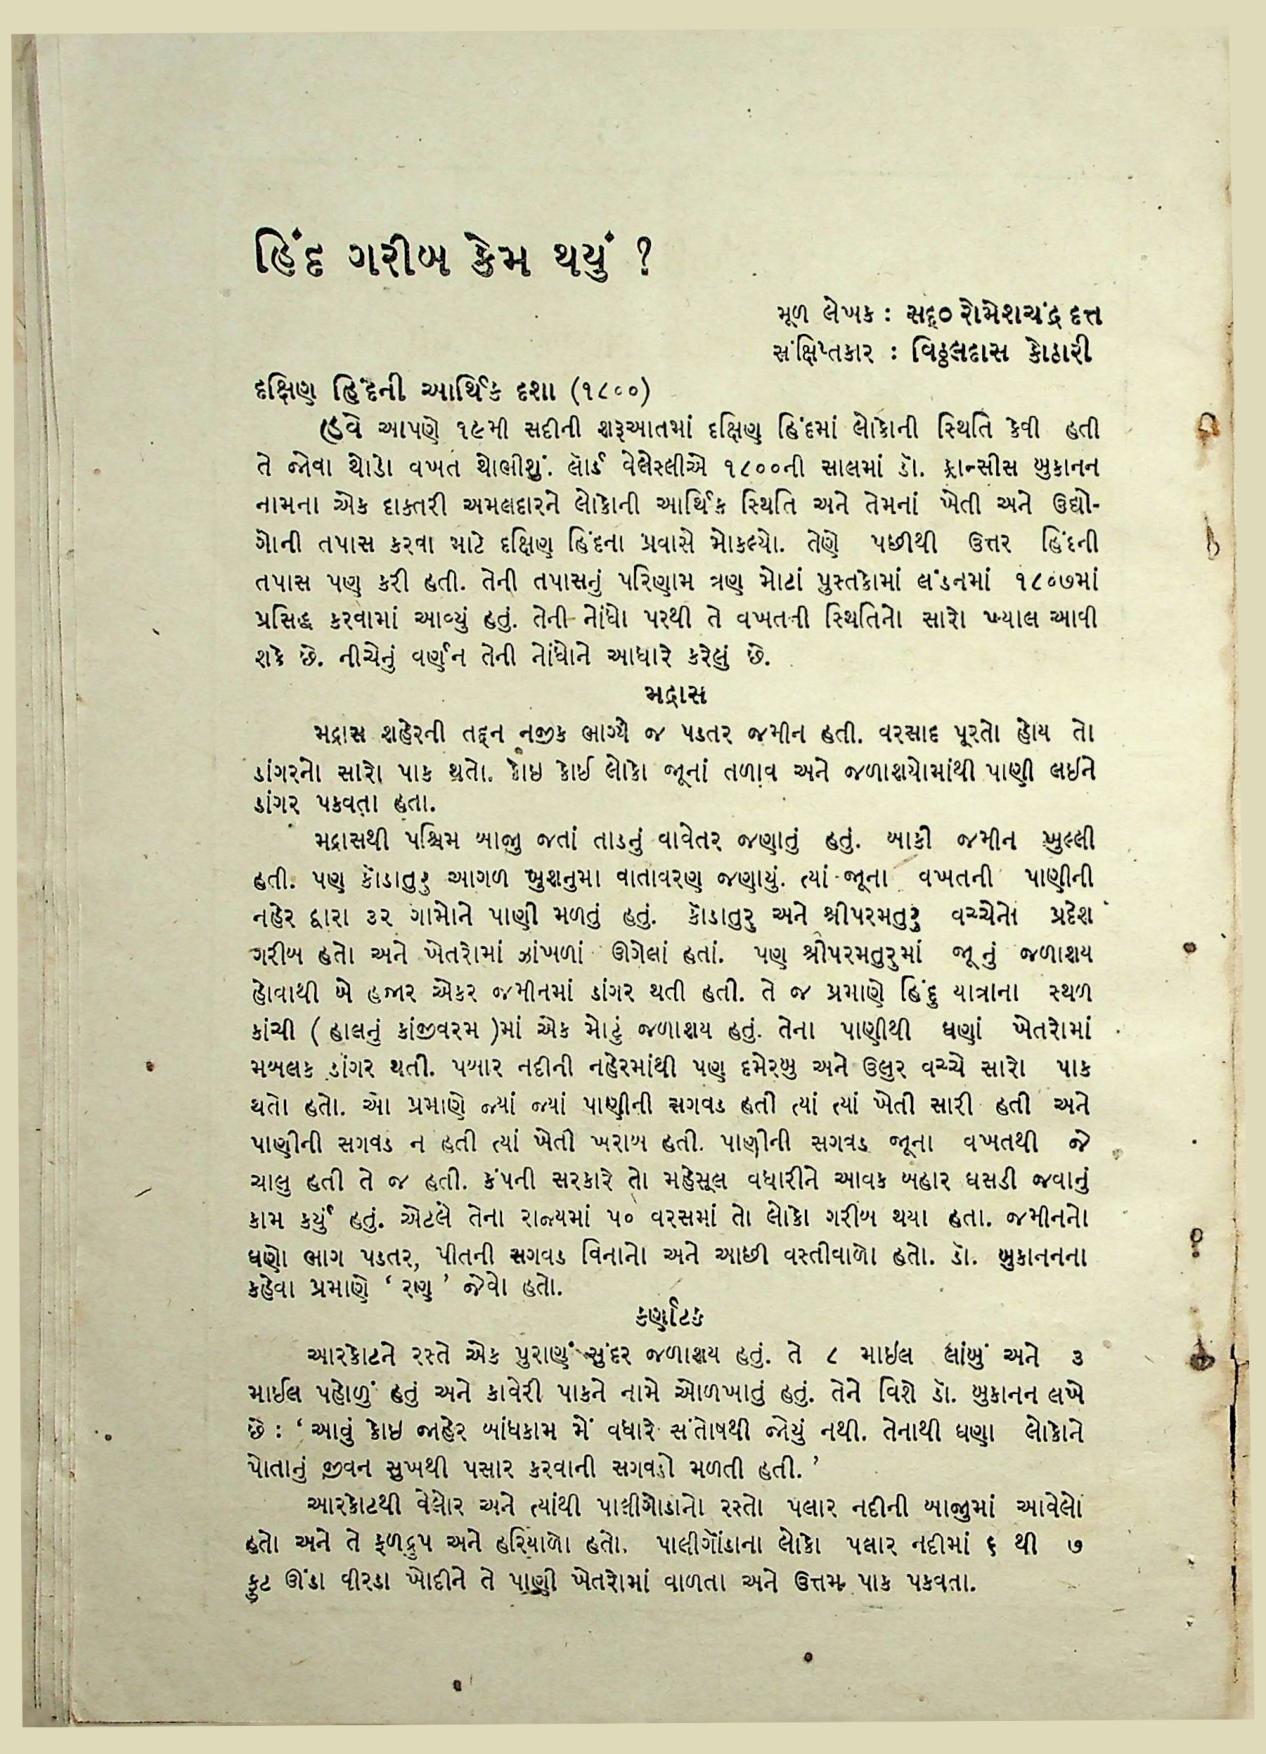 હિંદ ગરીબ કેમ થયું ?
મૂળ લેખક : સદ્દ૦ રોમેશચંદ્ર દત્ત
સંક્ષિપ્તકાર : વિઠ્ઠલદાસ કોઠારી
દક્ષિણ હિંદની આર્થિક દશા (૧૮૦૦)
હવે આપણે ૧૯મી સદીની શરૂઆતમાં દક્ષિણ હિંદમાં લોકોની સ્થિતિ કેવી હતી
તે જોવા થોડો વખત થોભીશું. લૉર્ડ વેલેસ્લીએ ૧૮૦૦ની સાલમાં ડૉ. ફ્રાન્સીસ બુકાનન
નામના એક દાક્તરી અમલદારને લોકોની આર્થિક સ્થિતિ અને તેમનાં ખેતી અને ઉદ્યો-
ગોની તપાસ કરવા માટે દક્ષિણ હિંદના પ્રવાસે મોકલ્યો. તેણે પછીથી ઉત્તર હિંદની
તપાસ પણ કરી હતી. તેની તપાસનું પરિણામ ત્રણ મોટાં પુસ્તકોમાં લંડનમાં ૧૮૦૭માં
પ્રસિદ્ધ કરવામાં આવ્યું હતું. તેની નોંધો પરથી તે વખતની સ્થિતિનો સારો ખ્યાલ આવી
શકે છે. નીચેનું વર્ણન તેની નોંધોને આધારે કરેલું છે.
મદ્રાસ
મદ્રાસ શહેરની તદ્દન નજીક ભાગ્યે જ પડતર જમીન હતી. વરસાદ પૂરતો હોય તો
ડાંગરનો સારો પાક થતો. કોઇ કોઈ લોકો જૂનાં તળાવ અને જળાશયોમાંથી પાણી લઈને
ડાંગર પકવતા હતા.
મદ્રાસથી પશ્ચિમ બાજુ જતાં તાડનું વાવેતર જણાતું હતું. બાકી જમીન ખુલ્લી
હતી. પણ કૉંડાતુરુ આગળ ખુશનુમા વાતાવરણ જણાયું. ત્યાં જૂના વખતની પાણીની
નહેર દ્વારા ૩૨ ગામોને પાણી મળતું હતું. કૉંડાતુરુ અને શ્રીપરમતુરુ વચ્ચેનો પ્રદેશ
ગરીબ હતો અને ખેતરોમાં ઝાંખળાં ઊગેલાં હતાં. પણ શ્રીપરમતુરુમાં જૂનું જળાશય
હોવાથી બે હજાર એકર જમીનમાં ડાંગર થતી હતી. તે જ પ્રમાણે હિંદુ યાત્રાના સ્થળ
કાંચી ( હાલનું કાંજીવરમ )માં એક મોટું જળાશય હતું. તેના પાણીથી ઘણાં ખેતરોમાં
મબલક ડાંગર થતી. પબાર નદીની નહેરમાંથી પણ દમેરબુ અને ઉલુર વચ્ચે સારો પાક
થતો હતો. આ પ્રમાણે જ્યાં જ્યાં પાણીની સગવડ હતી ત્યાં ત્યાં ખેતી સારી હતી અને
પાણીની સગવડ ન હતી ત્યાં ખેતી ખરાબ હતી. પાણીની સગવડ જૂના વખતથી જે
ચાલુ હતી તે જ હતી. કંપની સરકારે તો મહેસૂલ વધારીને આવક બહાર ઘસડી જવાનું
કામ કર્યું હતું. એટલે તેના રાજ્યમાં ૫૦ વરસમાં તો લોકો ગરીબ થયા હતા. જમીનનો
ઘણો ભાગ પડતર, પીતની સગવડ વિનાનો અને આછી વસ્તીવાળો હતો. ડૉ. બુકાનનના
કહેવા પ્રમાણે ‘ રણ ’ જેવો હતો.
કર્ણાટક
આરકોટને રસ્તે એક પુરાણું સુંદર જળાશય હતું. તે ૮ માઇલ લાંબું અને ૩
માઈલ પહોળું હતું અને કાવેરી પાકને નામે ઓળખાતું હતું. તેને વિશે ડૉ. બુકાનન લખે
છે : ‘ આવું કોઇ જાહેર બાંધકામ મેં વધારે સંતોષથી જોયું નથી. તેનાથી ઘણા લોકોને
પોતાનું જીવન સુખથી પસાર કરવાની સગવડો મળતી હતી. ’
આરકોટથી વેલોર અને ત્યાંથી પાલીગોંડાનો રસ્તો પલાર નદીની બાજુમાં આવેલો
હતો અને તે ફળદ્રુપ અને હરિયાળો હતો. પાલીગોંડાના લોકો પલાર નદીમાં ૬ થી ૭
ફુટ ઊંડા વીરડા ખોદીને તે પાણી ખેતરોમાં વાળતા અને ઉત્તમ પાક પકવતા.